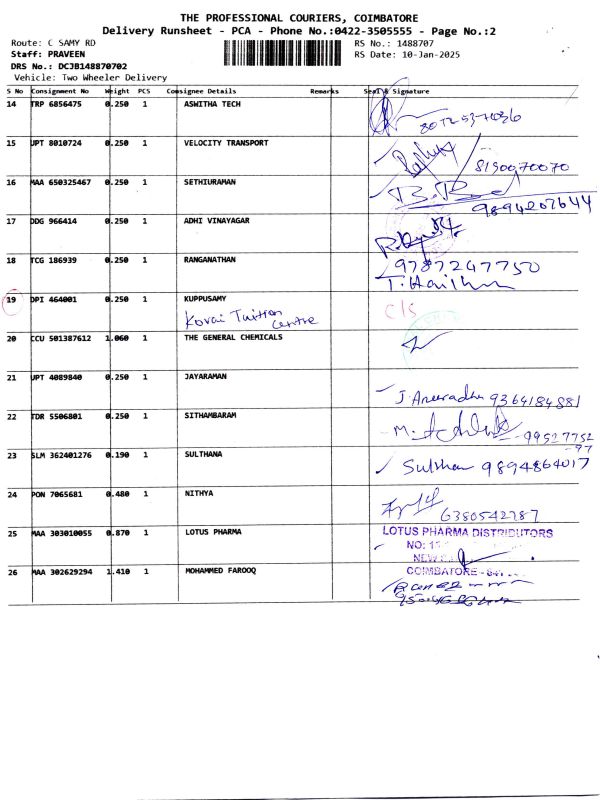 THE PROFESSIONAL COURIERS, COIMBATORE
Delivery Runsheet - PCA - Phone No.:0422-3505555 - Page No.:2
Route: C SAMY RD RS No.: 1488707
Staff: PRAVEEN RS Date: 10-Jan-2025
DRS No.: DCJB148870702
Vehicle: Two Wheeler Delivery
S No Consignment No Weight PCS Consignee Details Remarks Seal & Signature
14 TRP 6856475 0.250 1 ASWITHA TECH
15 UPT 8010724 0.250 1 VELOCITY TRANSPORT
8190070070
16 MAA 650325467 0.250 1 SETHIURAMAN
9894207644
17 DDG 966414 0.250 1 ADHI VINAYAGAR
18 TCG 186939 0.250 1 RANGANATHAN 9787247750
19 DPI 464001 0.250 1 KUPPUSAMY C/S
Kovai Tuition Centre
20 CCU 501387612 1.060 1 THE GENERAL CHEMICALS
21 UPT 4089840 0.250 1 JAYARAMAN
J. Anuradha 9364184881
22 TDR 5506801 0.250 1 SITHAMBARAM
23 SLM 362401276 0.190 1 SULTHANA
Sulthan 9894864017
24 PON 7065681 0.480 1 NITHYA
6380542787
25 MAA 303010055 0.870 1 LOTUS PHARMA LOTUS PHARMA DISTRIBUTORS
NO:
NEW
26 MAA 302629294 1.410 1 MOHAMMED FAROOQ COIMBATORE -